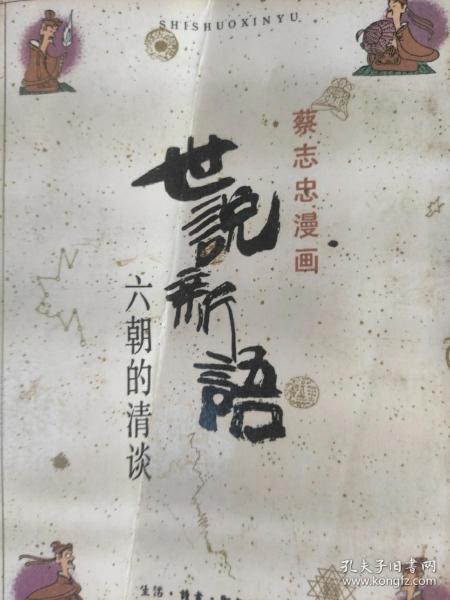 SHISHUOXINYU
蔡志忠漫画
世說新語
六朝的清谈
生活·讀書·
孔夫子旧书网
www.kongfz.com